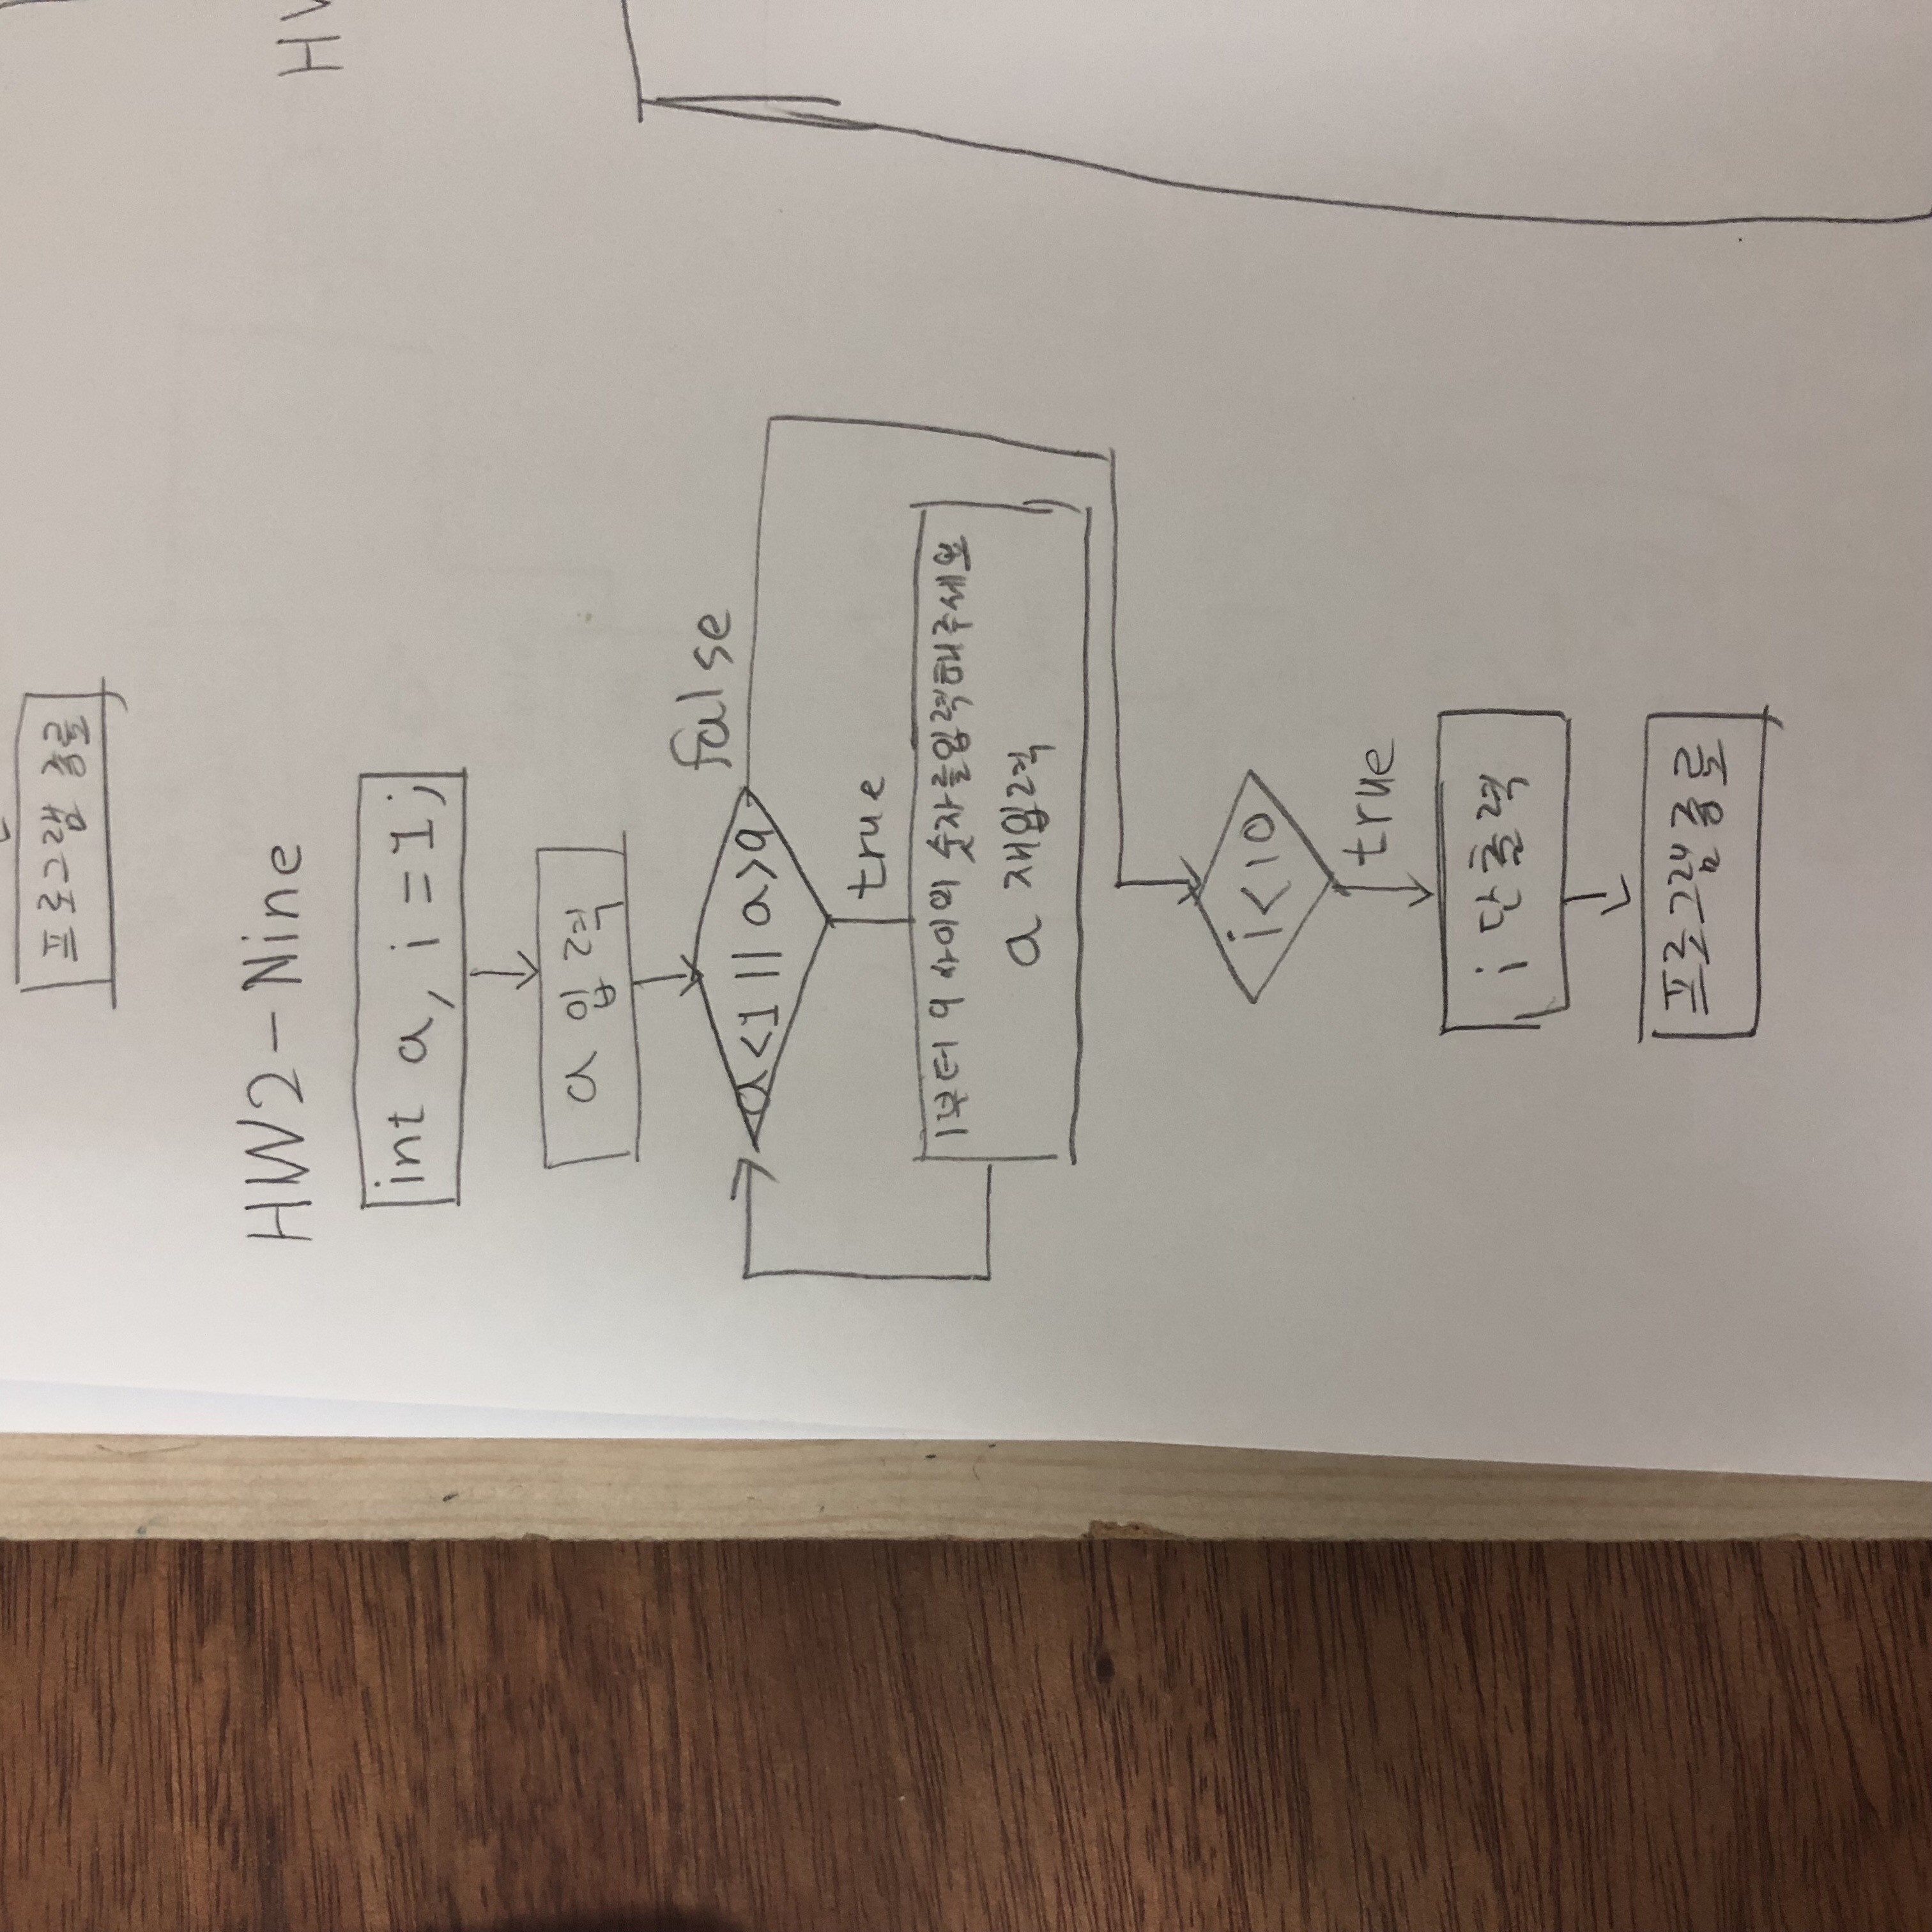 프로그램 종료
HW2-Nine
HW
int a, i = 1;
a 입력
false
a<1 || a>9
true
1부터 9 사이의 숫자를입력해주세요
a 재입력
i<10
true
i 단출력
프로그램종료